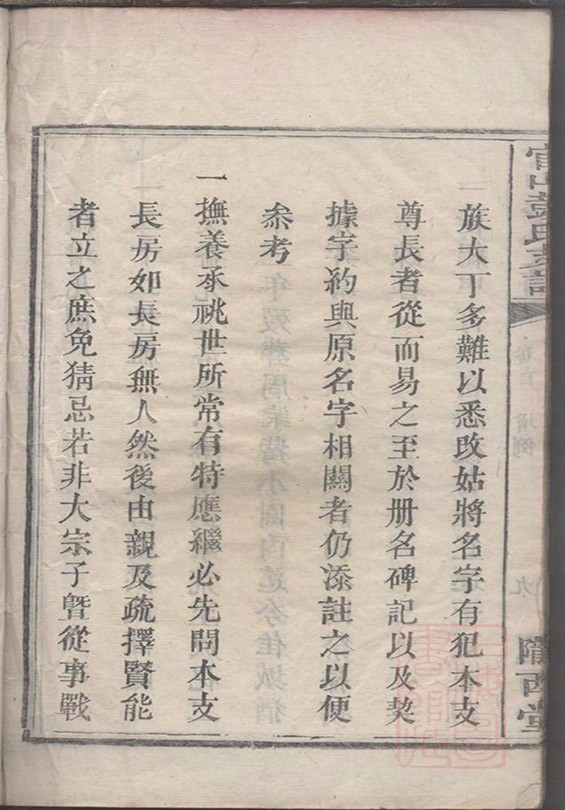 一族大丁多難以悉改姑將名字有犯本支
尊長者從而易之至於册名碑記以及契
據字約與原名字相關者仍添註之以便
叅考
一撫養承祧世所常有特應繼必先問本支
長房如長房無人然後由親及疏擇賢能
者立之庶免猜忌若非大宗子曁從事戰
卷首 増例
九
隴西堂